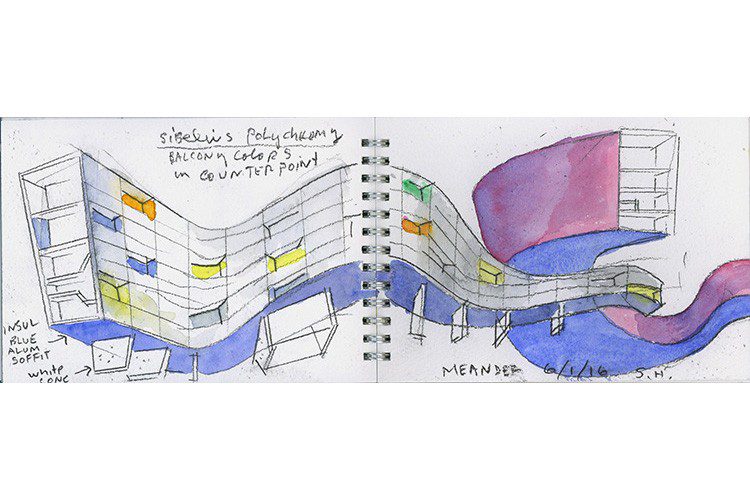 Sibelius Polychromy
BALCONY COLORS
in COUNTERPOINT
INSUL
BLUE
ALUM
SOFFIT
white
CONC
MEANDER 6/1/16 S.H.